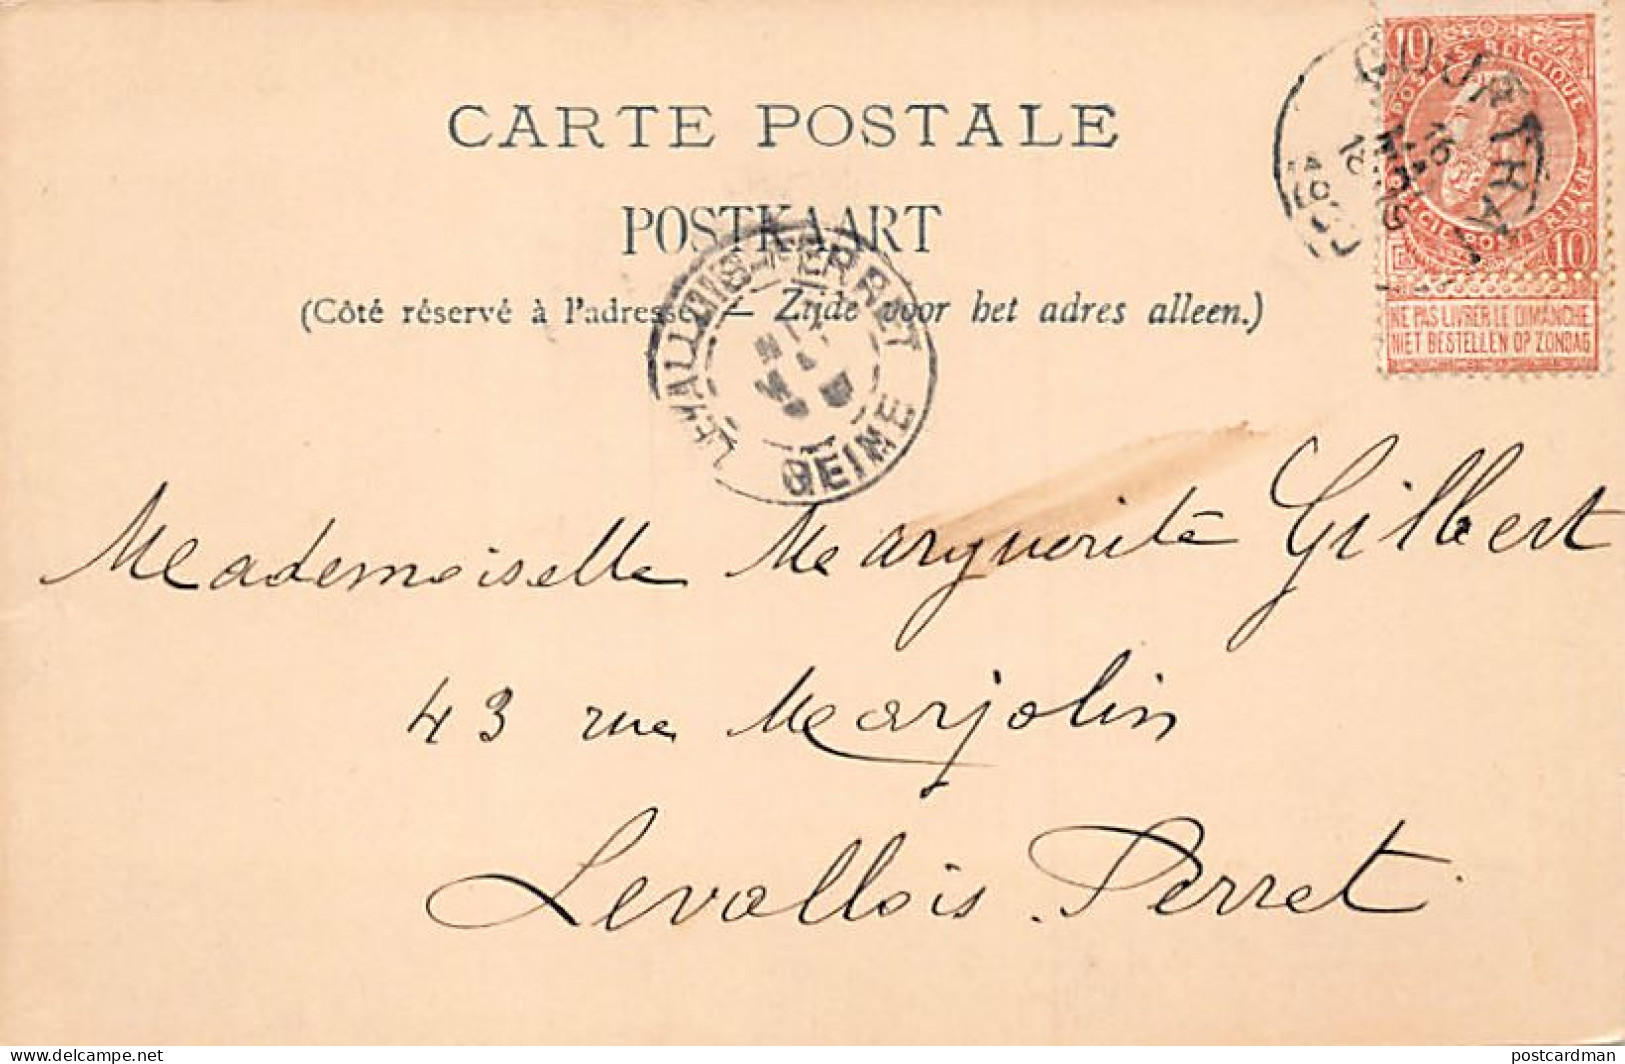 CARTE POSTALE
POSTKAART
(Côté réservé à l'adresse. — Zijde voor het adres alleen.)
COURTRAI
16
MARS
12
10
10
POSTES BELGIQUE
NE PAS LIVRER LE DIMANCHE
NIET BESTELLEN OP ZONDAG
LEVALLOIS-PERRET
SEINE
Mademoiselle Marguerite Gilbert
43 rue Marjolin
Levallois Perret.
www.delcampe.net
postcardman